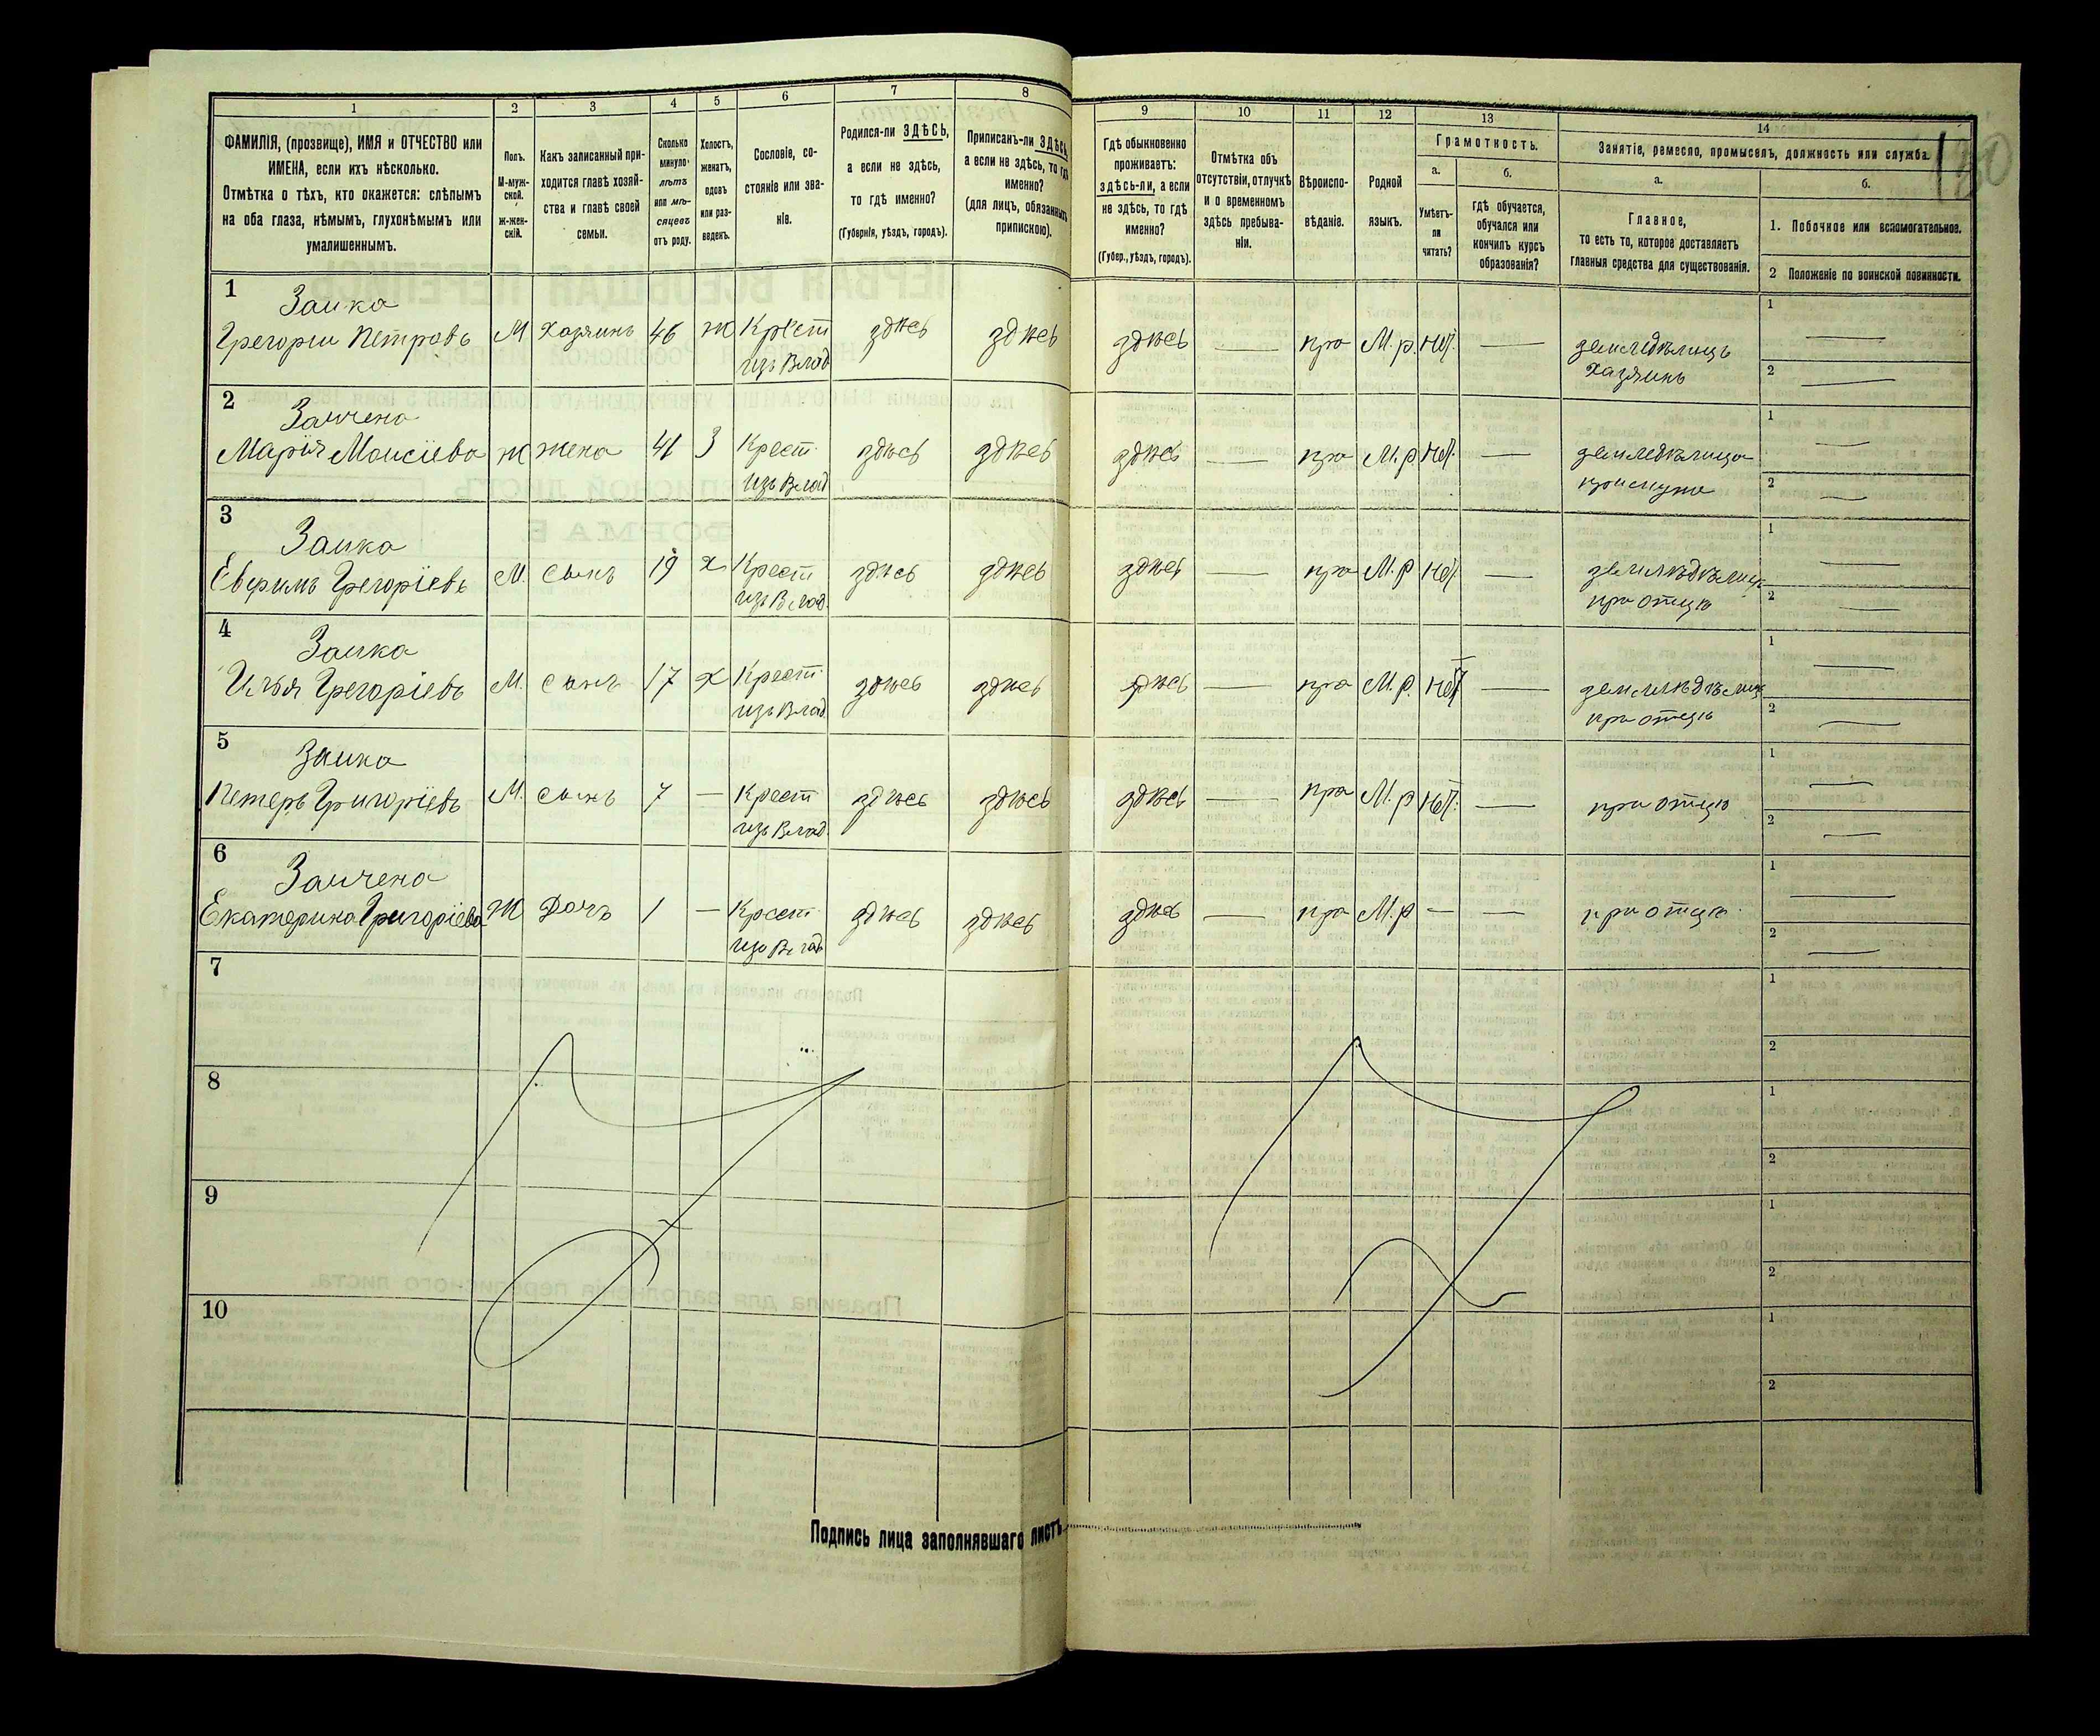 1 2 3 4 5 6 7 8 9 10 11 12 13 14
ФАМИЛІЯ, (прозвище), ИМЯ и ОТЧЕСТВО или
ИМЕНА, если ихъ нѣсколько.
Отмѣтка о тѣхъ, кто окажется: слѣпымъ
на оба глаза, нѣмымъ, глухонѣмымъ или
умалишеннымъ.
Полъ.
М-муж-
ской.
ж-жен-
скій.
Какъ записанный при-
ходится главѣ хозяй-
ства и главѣ своей
семьи.
Сколько
минуло
лѣтъ
или мѣ-
сяцевъ
отъ роду.
Холостъ,
женатъ,
вдовъ
или раз-
веденъ.
Сословіе, со-
стояніе или зва-
ніе.
Родился-ли ЗДѢСЬ,
а если не здѣсь,
то гдѣ именно?
(Губернія, уѣздъ, городъ).
Приписанъ-ли ЗДѢСЬ,
а если не здѣсь, то гдѣ
именно?
(для лицъ, обязанныхъ
припискою).
Гдѣ обыкновенно
проживаетъ:
здѣсь-ли, а если
не здѣсь, то гдѣ
именно?
(Губер., уѣздъ, городъ).
Отмѣтка объ
отсутствіи, отлучкѣ
и о временномъ
здѣсь пребыва-
ніи.
Вѣроиспо-
вѣданіе.
Родной
языкъ.
Грамотность.
а.
Умѣетъ-
ли
читать?
б.
гдѣ обучается,
обучался или
кончилъ курсъ
образованія?
Занятіе, ремесло, промыселъ, должность или служба.
а.
Главное,
то есть то, которое доставляетъ
главныя средства для существованія.
б.
1. Побочное или вспомогательное.
2 Положеніе по воинской повинности.
1 Заика
Грегории Петровъ М хазяинъ 46 ж Крест здѣсь здѣсь здѣсь — пра М.р. нет. — земледѣлицъ 1 —
изъ Влад хазяинъ 2 —
2 Заичена
Марія Моисіева ж жена 41 З Крест здѣсь здѣсь здѣсь — пра М.р нет. — земледѣлица 1 —
изъ Влад 2 —
3 Заика
Евфимъ Грегоріевъ М. сынъ 19 х Крест здѣсь здѣсь здѣсь — пра М.р нет. — 1 —
изъ Влад. при отцѣ 2 —
4 Заика
Илья Грегоріевъ М. сынъ 17 х Крест здѣсь здѣсь здѣсь — пра М.р. нет — 1 —
изъ Влад. при отцѣ 2 —
5 Заика
Петеръ Григоріевъ М. сынъ 7 — Крест здѣсь здѣсь здѣсь — пра М.р нет. — при отцѣ 1 —
изъ Влад. 2 —
6 Заичена
Екатерина Григоріева Ж Дочъ 1 — Крест здѣсь здѣсь здѣсь — пра М.р — — при отцѣ. 1 —
изъ Влад 2 —
7 1
2
8 1
2
9 1
2
10 1
2
Подпись лица заполнявшаго листъ